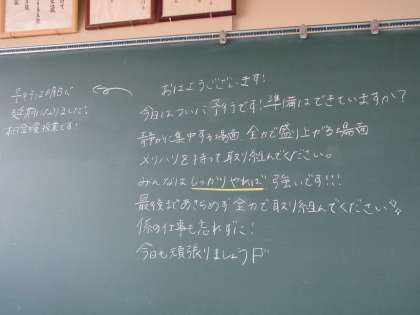 おはようございます!
今日はついに予行です!準備はできていますか?
静かに集中する場面 全力で盛り上がる場面
メリハリを持って取り組んでください。
みんなはしっかりやれば強いです!!!
最後まであきらめず全力で取り組んでください
係の仕事も忘れずに!
今日も頑張りましょう
予行は
延期になりました!
授業です!